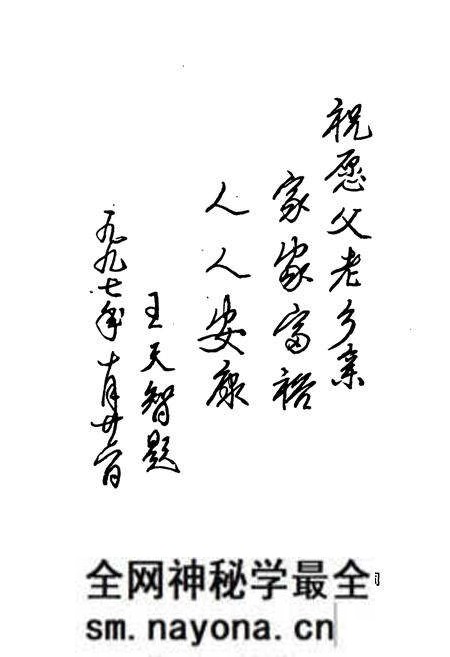 祝愿父老乡亲
家家富裕
人人安康
王天智题
一九九七年十月廿六日
全网神秘学最全
sm.nayona.cn